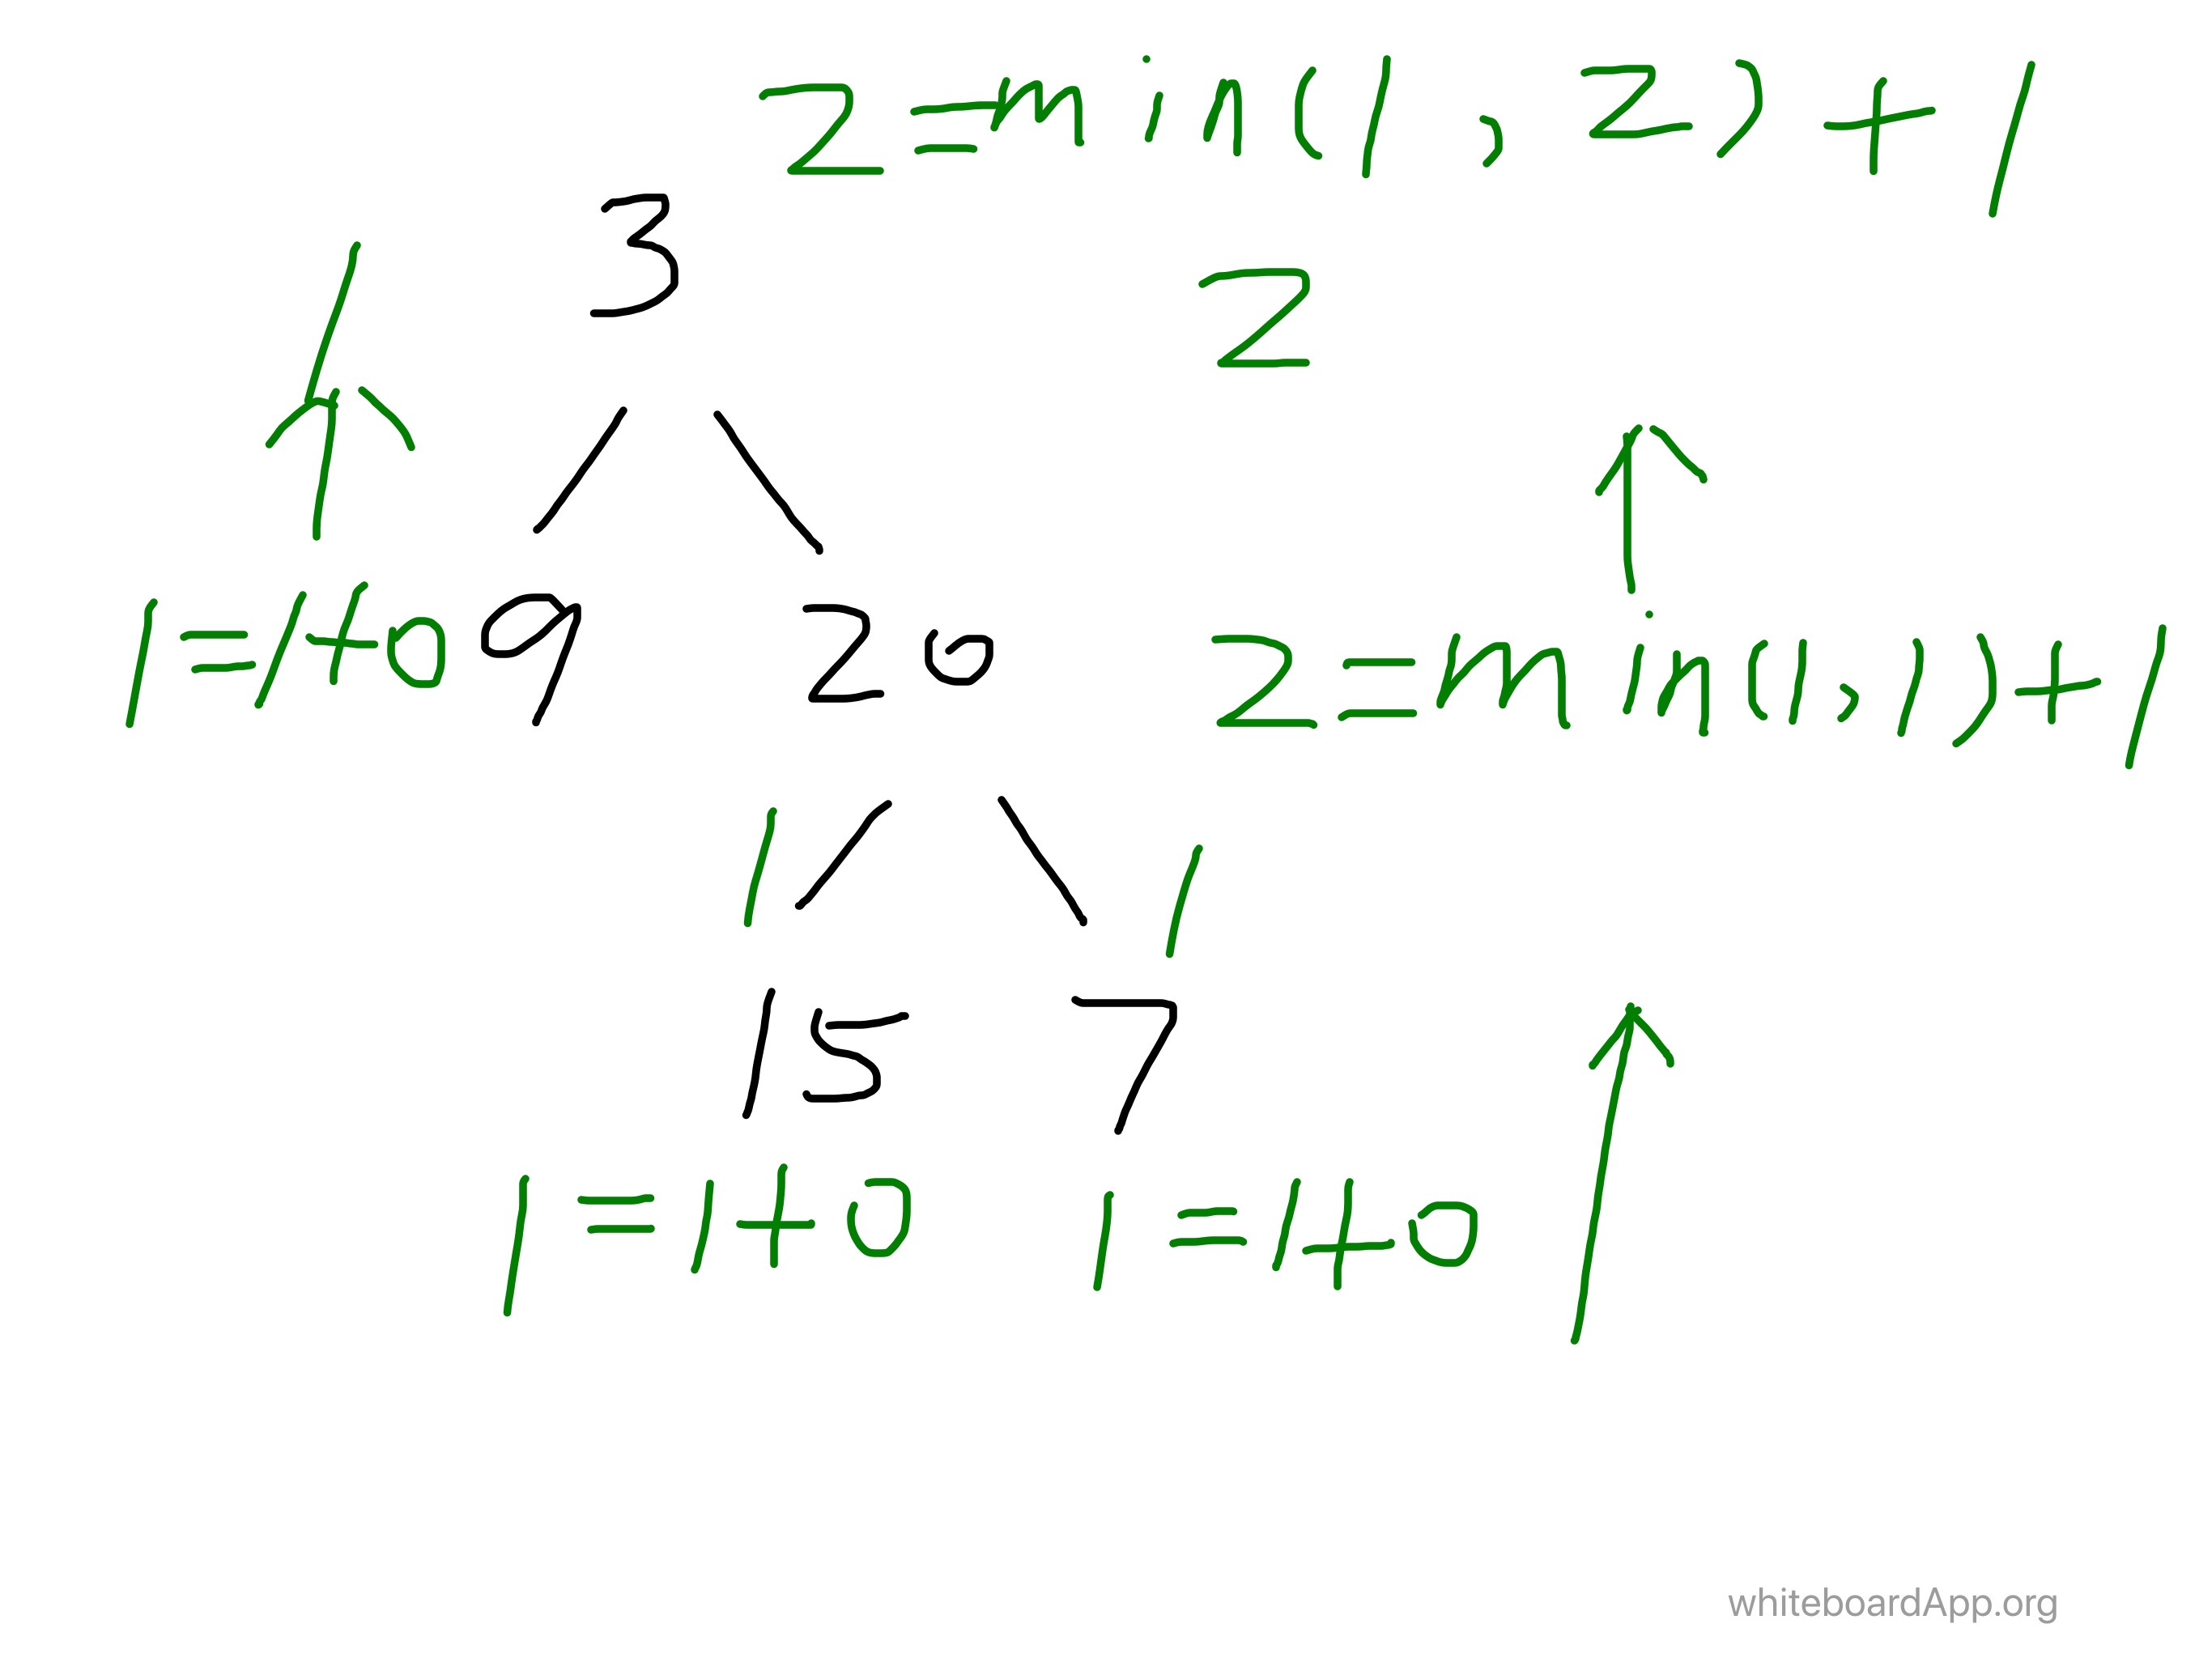 2=min(1, 2)+1
3
1
2
1=1+0 9 20 2=min(1,1)+1
1 1
15 7
1=1+0 1=1+0
whiteboardApp.org